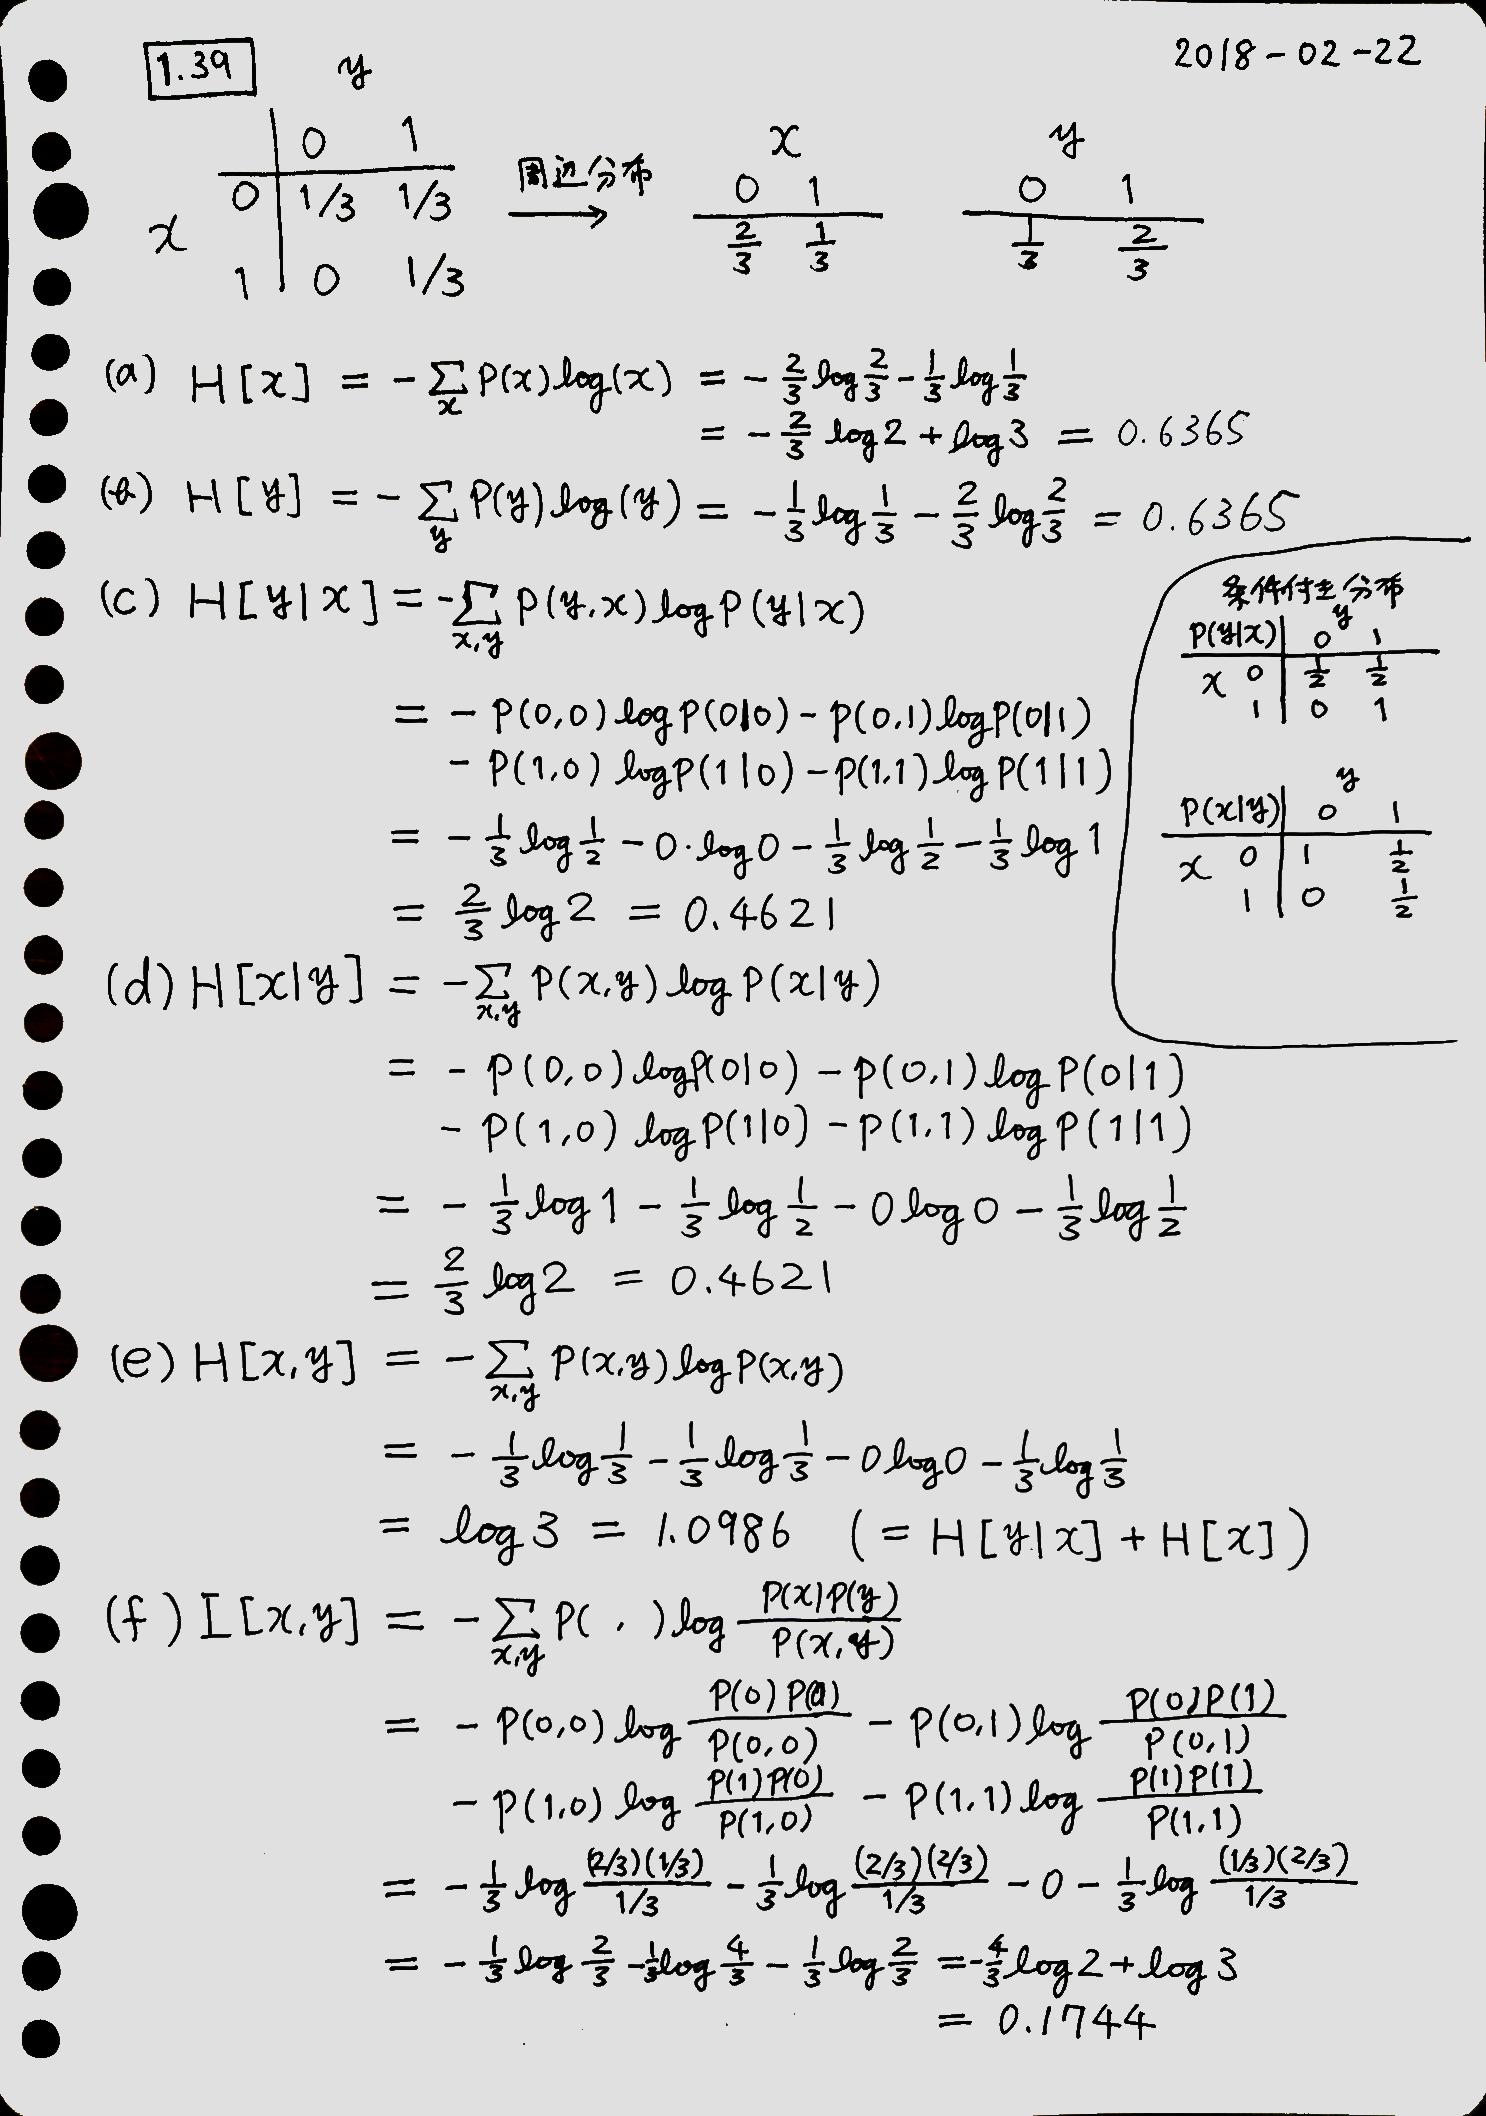 1.39
2018-02-22
y
0 1
x 0 1/3 1/3
1 0 1/3
周辺分布
→
x
0 1
2/3 1/3
y
0 1
1/3 2/3
(a) H[x] = -∑_x P(x)log(x) = -2/3 log 2/3 - 1/3 log 1/3
= -2/3 log2 + log3 = 0.6365
(b) H[y] = -∑_y P(y)log(y) = -1/3 log 1/3 - 2/3 log 2/3 = 0.6365
(c) H[y|x] = -∑_{x,y} P(y,x)logP(y|x)
= -P(0,0)logP(0|0) - P(0,1)logP(0|1)
-P(1,0)logP(1|0) - P(1,1)logP(1|1)
= -1/3 log 1/2 - 0·log0 - 1/3 log 1/2 - 1/3 log1
= 2/3 log2 = 0.4621
条件付き分布
y
P(y|x) 0 1
x 0 1/2 1/2
1 0 1
y
P(x|y) 0 1
x 0 1 1/2
1 0 1/2
(d) H[x|y] = -∑_{x,y} P(x,y)logP(x|y)
= -P(0,0)logP(0|0) - P(0,1)logP(0|1)
-P(1,0)logP(1|0) - P(1,1)logP(1|1)
= -1/3 log1 - 1/3 log 1/2 - 0log0 - 1/3 log 1/2
= 2/3 log2 = 0.4621
(e) H[x,y] = -∑_{x,y} P(x,y)logP(x,y)
= -1/3 log 1/3 - 1/3 log 1/3 - 0log0 - 1/3 log 1/3
= log3 = 1.0986 (= H[y|x] + H[x])
(f) I[x,y] = -∑_{x,y} P( , )log P(x)P(y)/P(x,y)
= -P(0,0)log P(0)P(0)/P(0,0) - P(0,1)log P(0)P(1)/P(0,1)
-P(1,0)log P(1)P(0)/P(1,0) - P(1,1)log P(1)P(1)/P(1,1)
= -1/3 log (2/3)(1/3)/1/3 - 1/3 log (2/3)(2/3)/1/3 - 0 - 1/3 log (1/3)(2/3)/1/3
= -1/3 log 2/3 - 1/3 log 4/3 - 1/3 log 2/3 = -4/3 log2 + log3
= 0.1744